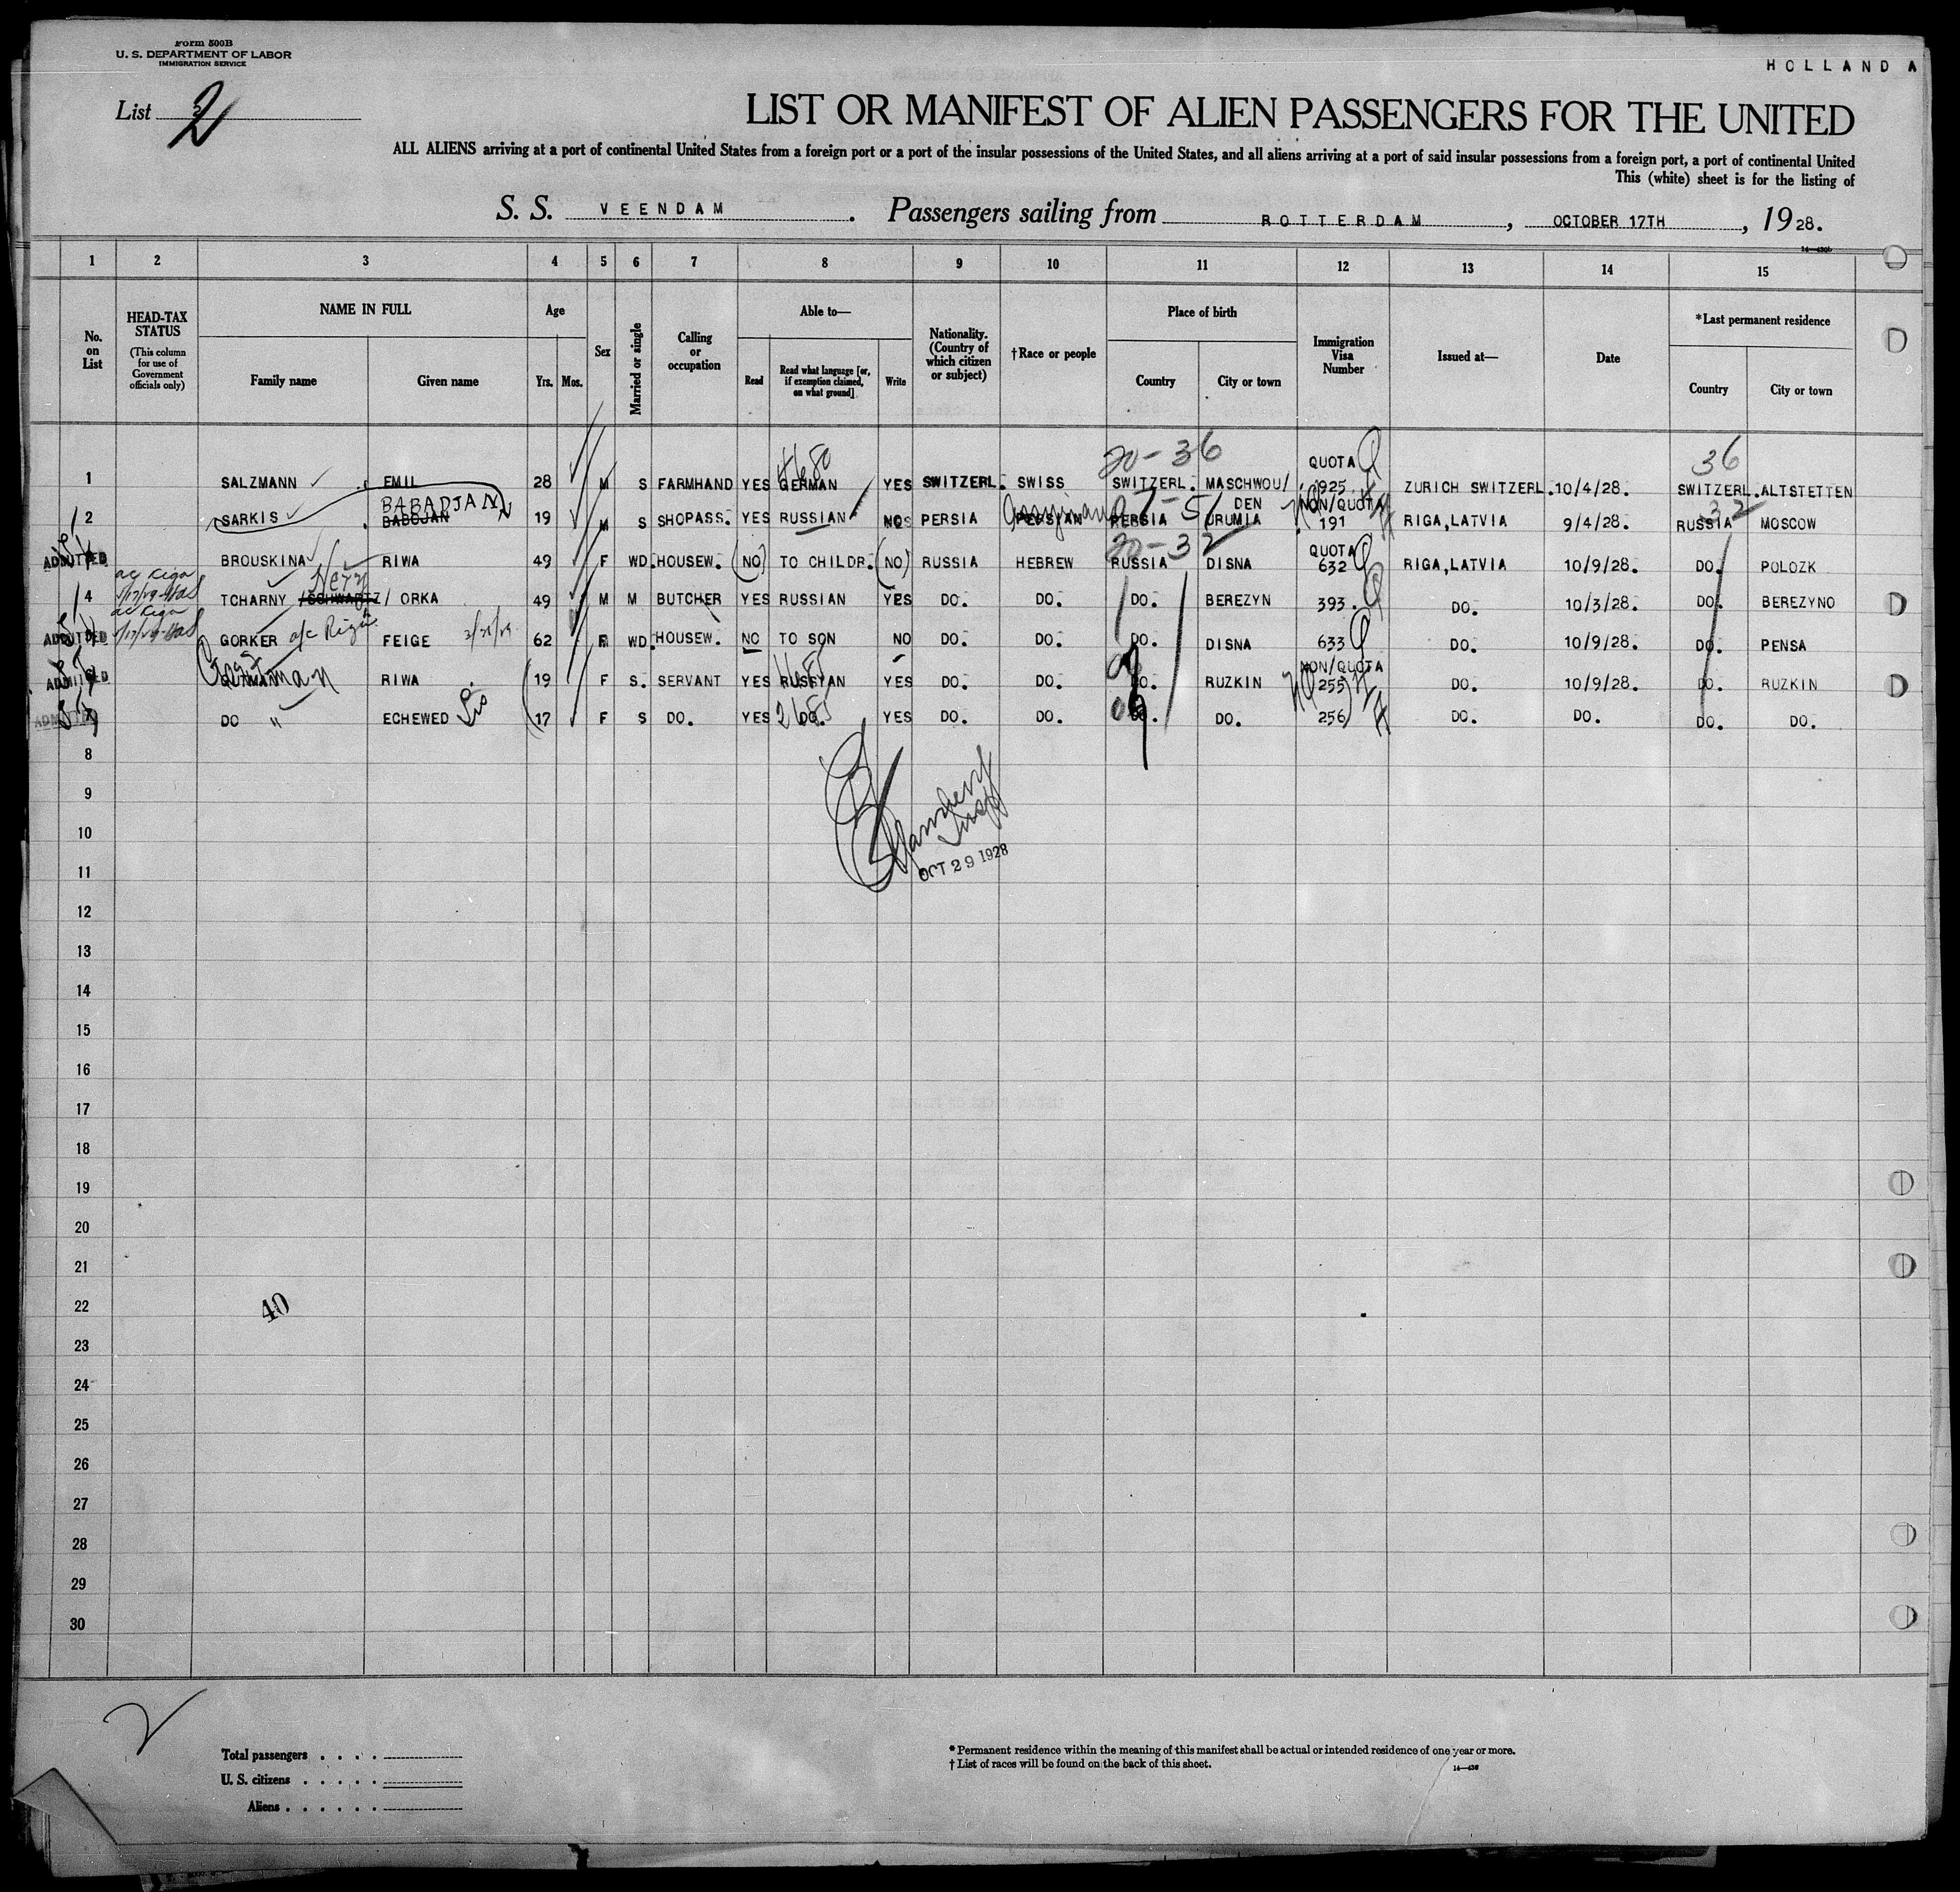 Form 500B
U. S. DEPARTMENT OF LABOR
IMMIGRATION SERVICE
HOLLAND A
List 2
LIST OR MANIFEST OF ALIEN PASSENGERS FOR THE UNITED
ALL ALIENS arriving at a port of continental United States from a foreign port or a port of the insular possessions of the United States, and all aliens arriving at a port of said insular possessions from a foreign port, a port of continental United
This (white) sheet is for the listing of
S. S. VEENDAM. Passengers sailing from ROTTERDAM, OCTOBER 17TH, 1928.
1 2 3 4 5 6 7 8 9 10 11 12 13 14 15
No. on List HEAD-TAX STATUS (This column for use of Government officials only) NAME IN FULL Family name Given name Age Yrs. Mos. Sex Married or single Calling or occupation Able to— Read Read what language [or, if exemption claimed, on what ground] Write Nationality. (Country of which citizen or subject) †Race or people Place of birth Country City or town Immigration Visa Number Issued at— Date *Last permanent residence Country City or town
20-36 QUOTA Q 36
1 SALZMANN EMIL 28 M S FARMHAND YES GERMAN YES SWITZERL. SWISS SWITZERL. MASCHWOU/DEN 925 ZURICH SWITZERL. 10/4/28. SWITZERL. ALTSTETTEN
BABADJAN NON/QUOTA
2 SARKIS BABOJAN 19 M S SHOPASS. YES RUSSIAN NO PERSIA PERSIAN PERSIA URUMIA 191 RIGA, LATVIA 9/4/28. RUSSIA MOSCOW
20-32 QUOTA Q
ADMITTED BROUSKINA RIWA 49 F WD. HOUSEW. (NO) TO CHILDR. (NO) RUSSIA HEBREW RUSSIA DISNA 632 RIGA, LATVIA 10/9/28. DO. POLOZK
4 TCHARNY /SCHWARTZ/ ORKA 49 M M BUTCHER YES RUSSIAN YES DO. DO. DO. BEREZYN 393. DO. 10/3/28. DO. BEREZYNO
ADMITTED GORKER a/c Riga FEIGE 62 F WD. HOUSEW. NO TO SON NO DO. DO. DO. DISNA 633 DO. 10/9/28. DO. PENSA
NON/QUOTA
ADMITTED RIWA 19 F S. SERVANT YES RUSSIAN YES DO. DO. DO. RUZKIN 255 DO. 10/9/28. DO. RUZKIN
ADMITTED DO " ECHEWED 17 F S DO. YES DO. YES DO. DO. DO. DO. 256 DO. DO. DO. DO.
8
9
10
OCT 29 1928
11
12
13
14
15
16
17
18
19
20
21
22
40
23
24
25
26
27
28
29
30
2
Total passengers . . . .
U. S. citizens . . . . .
Aliens . . . . . .
* Permanent residence within the meaning of this manifest shall be actual or intended residence of one year or more.
† List of races will be found on the back of this sheet.